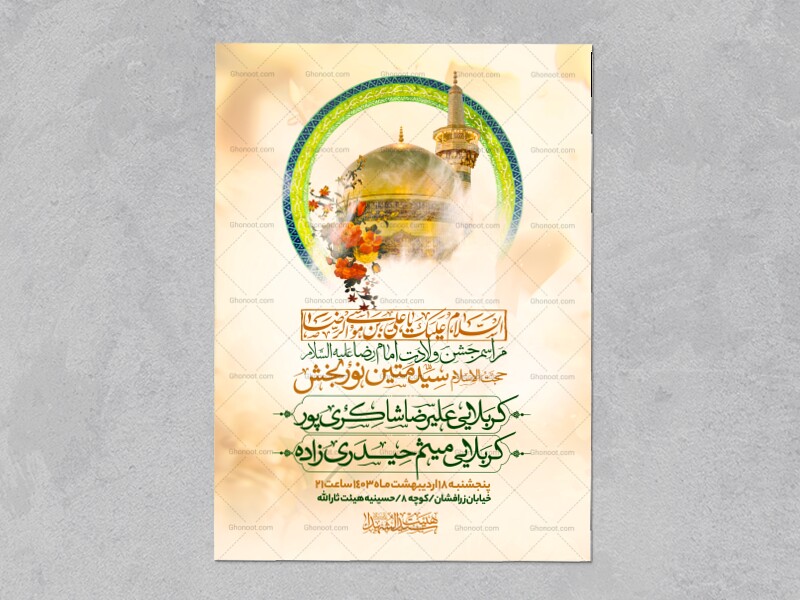 السلام علیک یا علی بن موسی الرضا
مراسم جشن ولادت امام رضا علیه السلام
حجت الاسلام سید متین نوربخش
کربلایی علیرضا شاکری پور
کربلایی میثم حیدری زاده
پنجشنبه ۱۸ اردیبهشت ماه ۱۴۰۳ ساعت ۲۱
خیابان زرافشان/کوچه ۸/حسینیه هیئت ثارالله
هیئت سیدالشهدا
Ghonoot.com